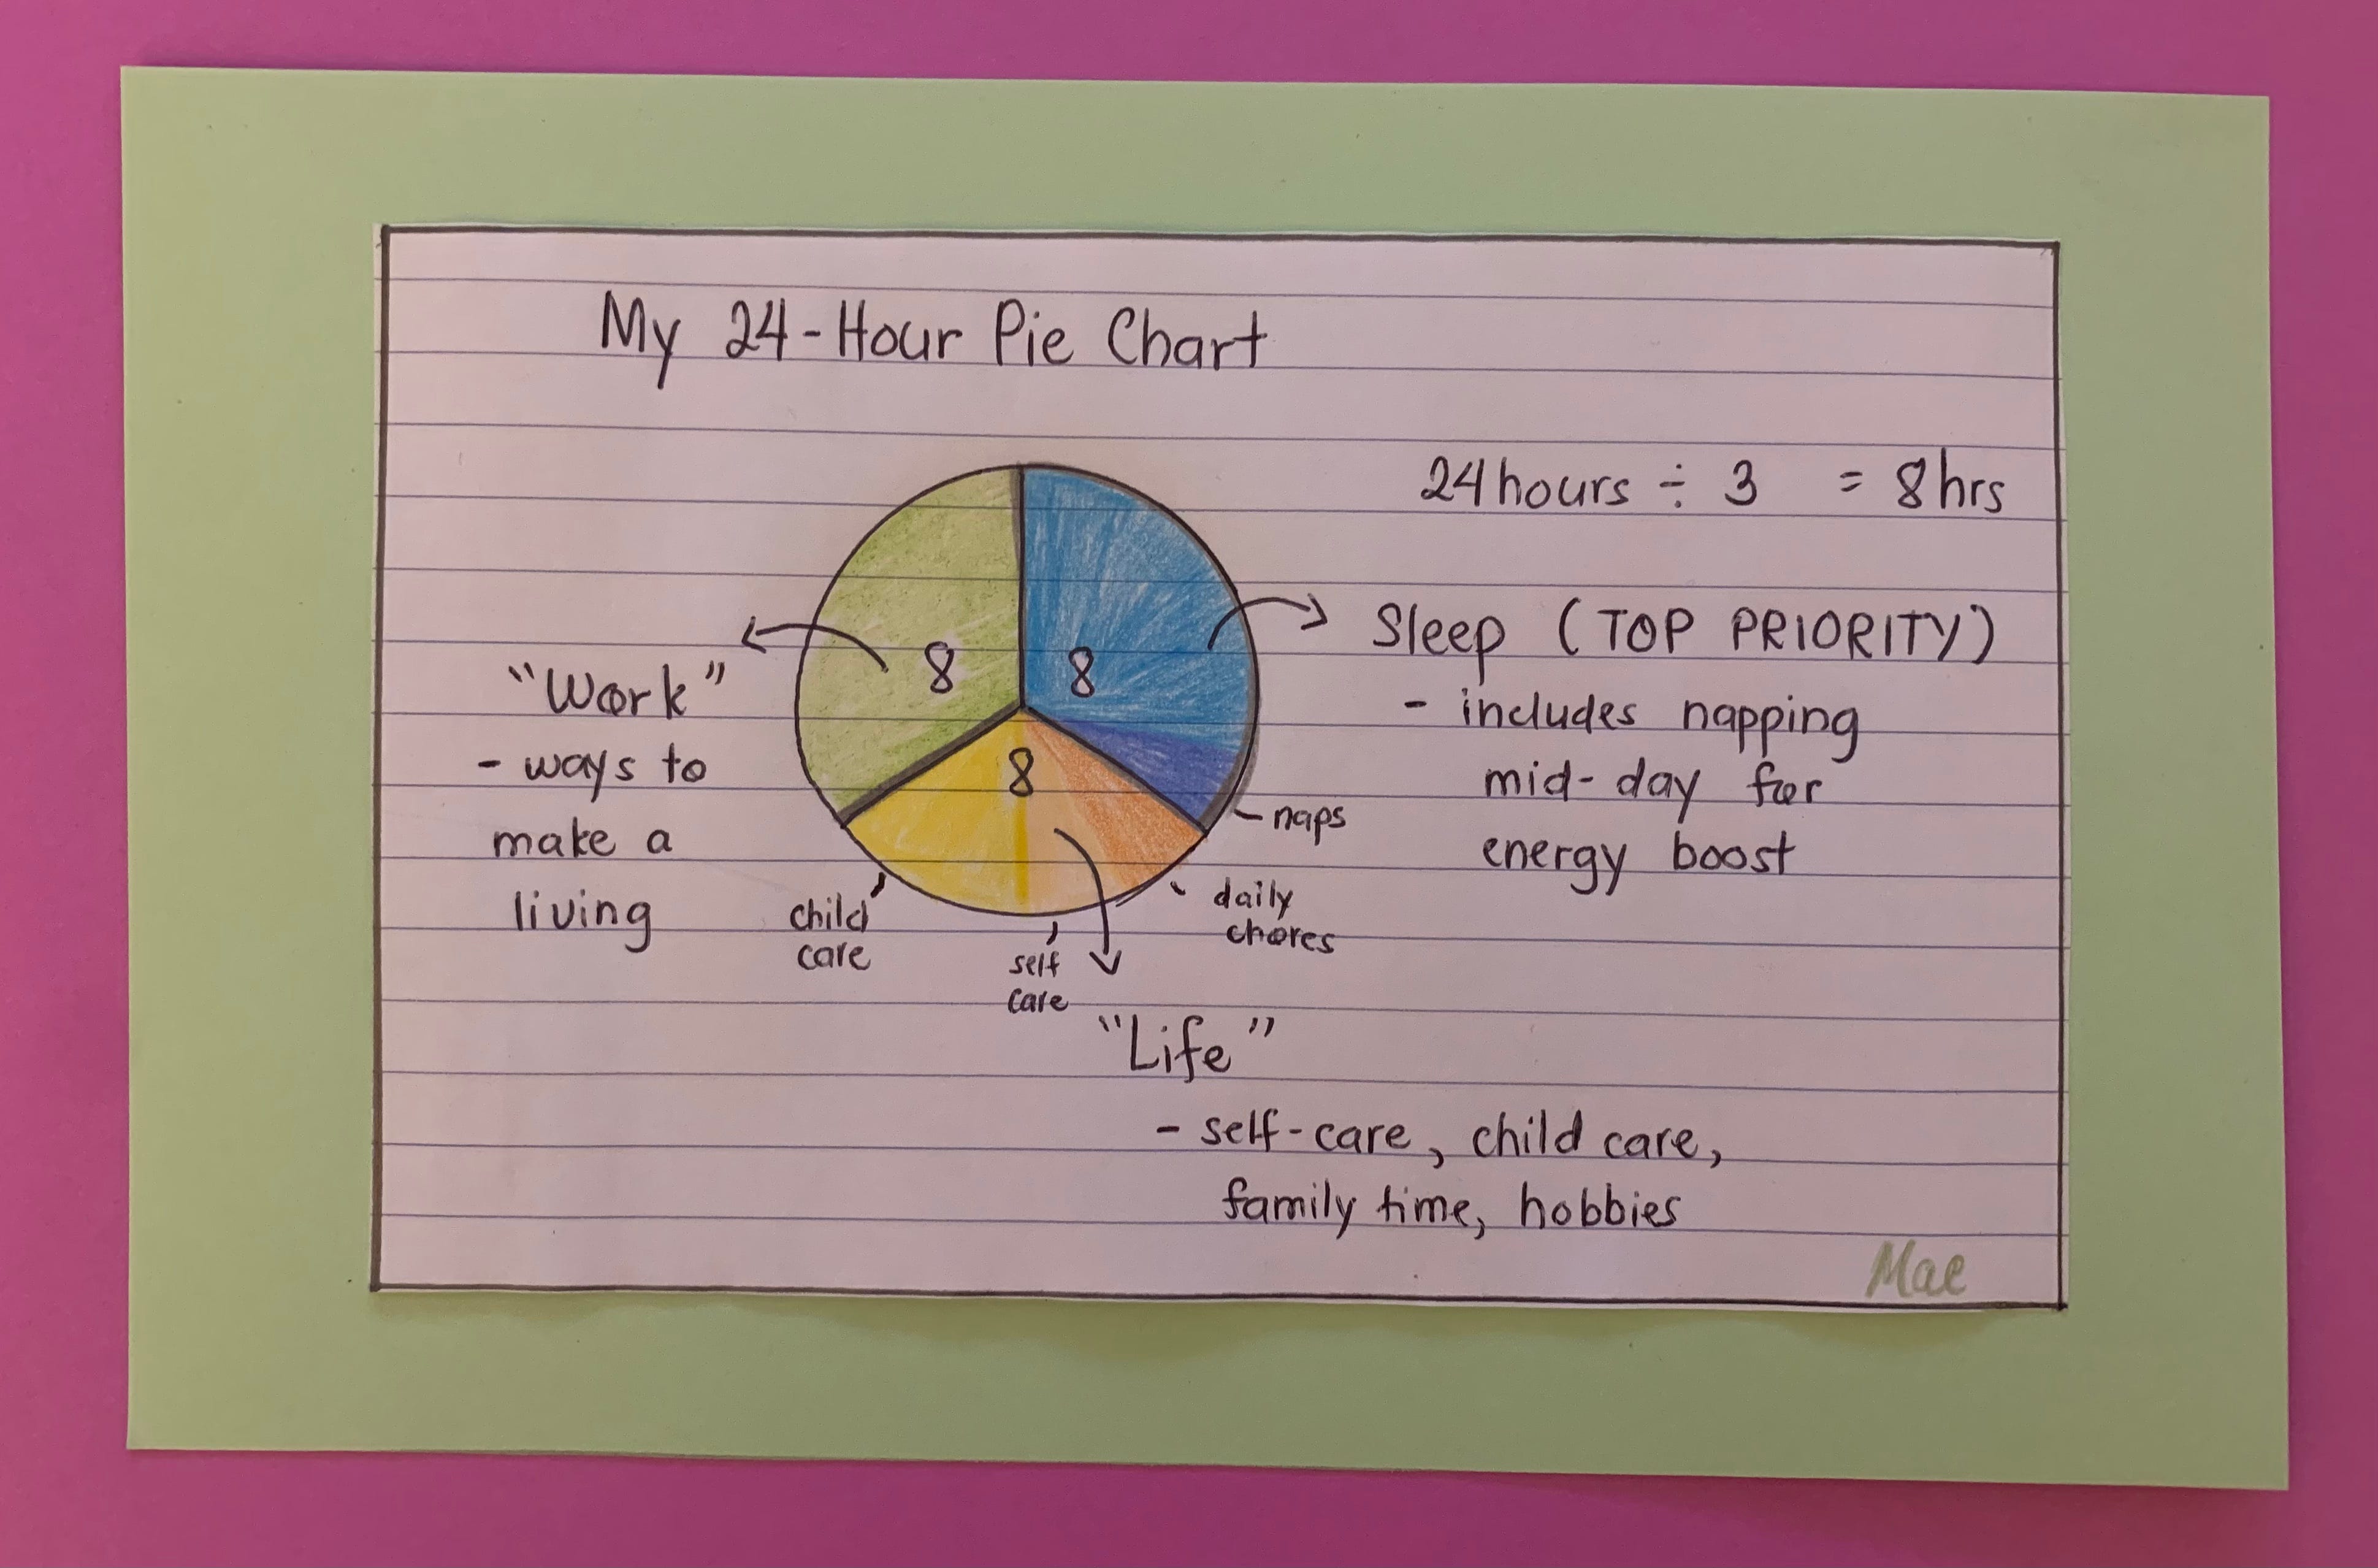 My 24-Hour Pie Chart
24 hours ÷ 3 = 8 hrs
8
8
8
Sleep (TOP PRIORITY)
- includes napping
mid-day for
energy boost
"Work"
- ways to
make a
living
naps
daily
chores
child
care
self
care
"Life"
- self-care, child care,
family time, hobbies
Mae